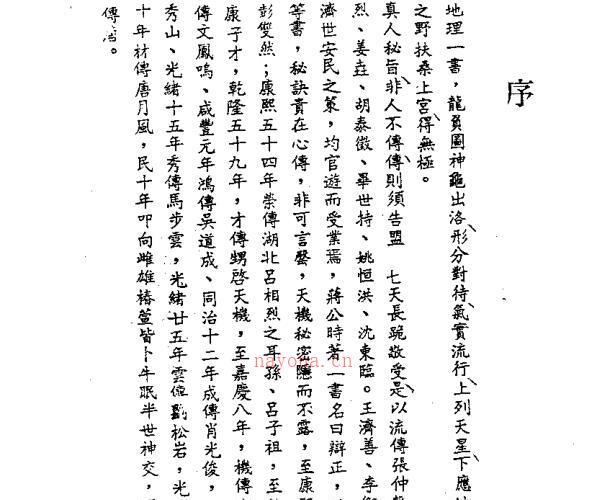 序
地理一書,龍負圖神龜出洛形分對待氣實流行上列天星下應
之野扶桑上宮得無極。
真人秘旨非人不傳傳則須告盟 七天長跪敬受是以流傳張仲
烈、姜垚、胡泰徵、畢世持、姚恒洪、沈東臨。王濟善、李
濟世安民之策,均官遊而受業焉,蔣公時著一書名曰辯正,
等書,秘訣貴在心傳,非可言罄,天機秘密隱而不露,至康
彭雙然;康熙五十四年崇傳湖北呂相烈之耳孫、呂子祖,至
康子才,乾隆五十九年,才傳甥啓天機,至嘉慶八年,機傳
傳文鳳鳴、咸豐元年鴻傳吳道成、同治十二年成傳肖光俊,
秀山、光緒十五年秀傳馬步雲,光緒廿五年雲傳劉松岩,光
十年材傳唐月風,民十年叩向雌雄椿萱皆卜牛眠半世神交,
傳焉。
nayona.cn